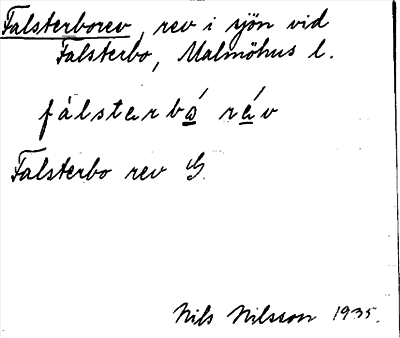 Falsterborev, rev i sjön vid
Falsterbo, Malmöhus l.
fálstarbǫ́ rą́v
Falsterbo rev G.
Nils Nilsson 1935.